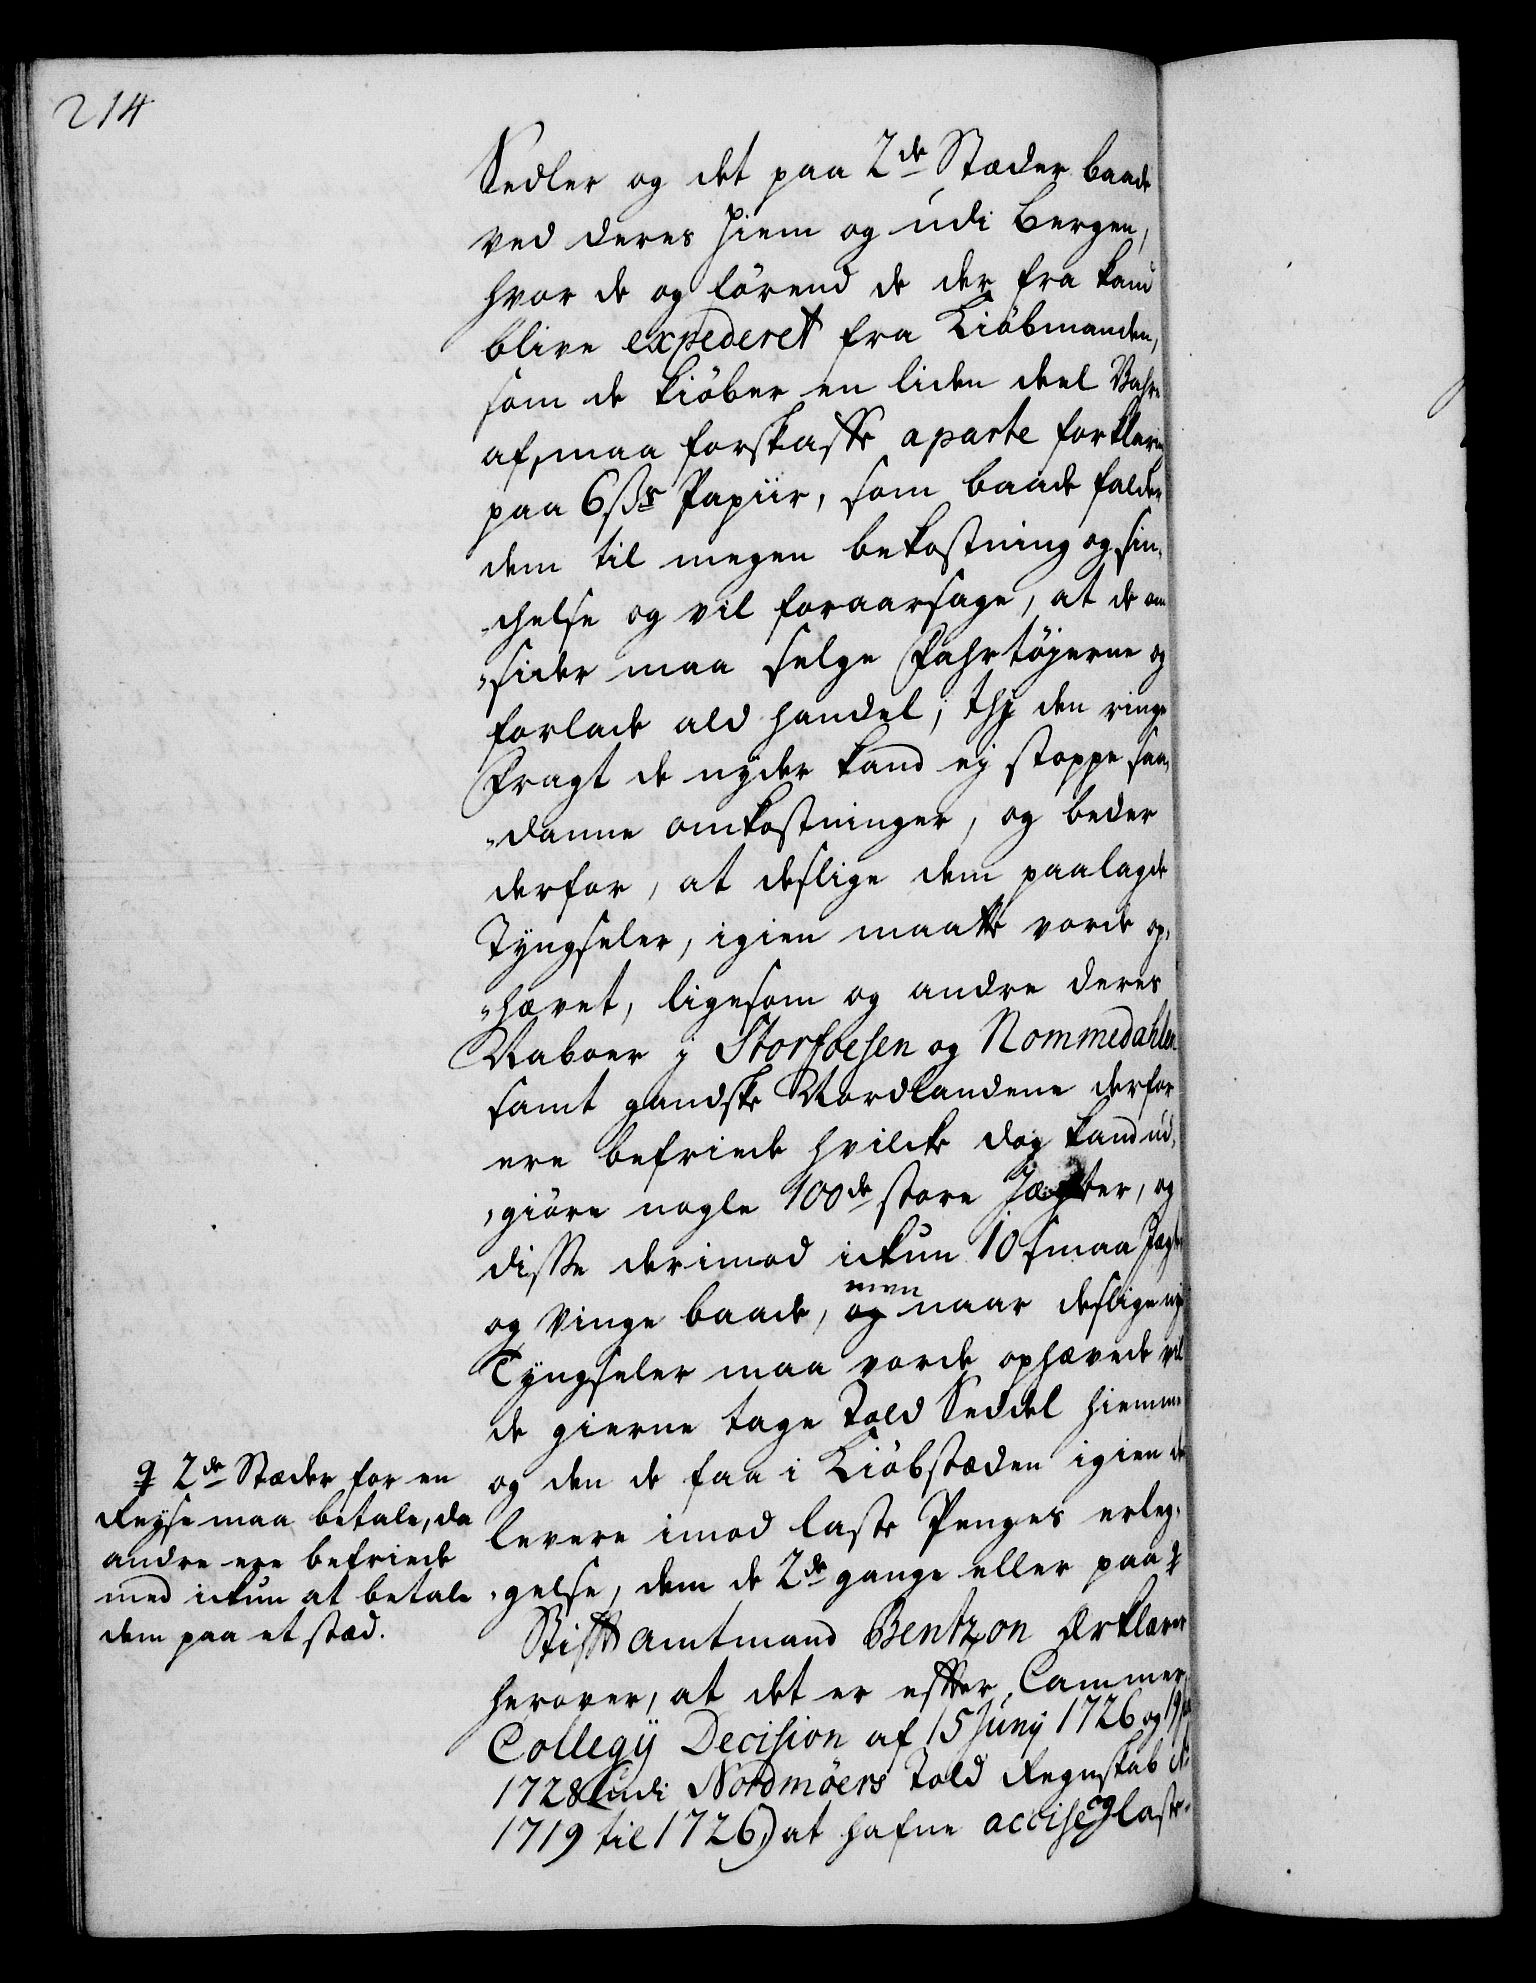 214
Sedler og det paa 2de Stæder baade
ved deres Hiem og udi Bergen,
hvor de og förend de der fra kand
blive expederet fra Kiöbmanden,
som de kiöber en liden deel Vahre
af, maa forskaffe aparte forklaring
paa 6 ss Papiir, som baade falder
dem til megen bekostning og sin-
chelse og vil foraarsage, at de om
sider maa selge Fahrtöyerne og
forlade ald handel, thi den ringe
Fragt de nyder kand ej stoppe saa-
danne omkostninger, og beder
derfor, at deslige dem paalagde
Tyngseler, igien maatte vorde op-
hævet, ligesom og andre deres
Naboer i Storfoesen og Nommedahlen
samt gandske Nordlandene derfor
ere befriede hvilcke dog kand ud-
giöre nogle 100de store Jægter, og
disse derimod ickun 10 smaa Jægte
og Vinge baade, og men naar deslige nye
Tyngseler maa vorde ophævede vil
de gierne tage Told Seddel hiemme
og den de faa i Kiöbstæden igien de
levere imod laste Penges erleg-
gelse, dem de 2de gange eller paa ꝗ
ꝗ 2de Stæder for en
Reyse maa betale, da
andre ere befriede
med ickun at betale
dem paa et stæd.
Stiftamtmand Bentzon Erklærer
herover, at det er efter Cammer
Collegij Decision af 15 Junij 1726 og 19
1728 (udi Nordmöers Told Regnskab
1719 til 1726) at hafne accise og laste-